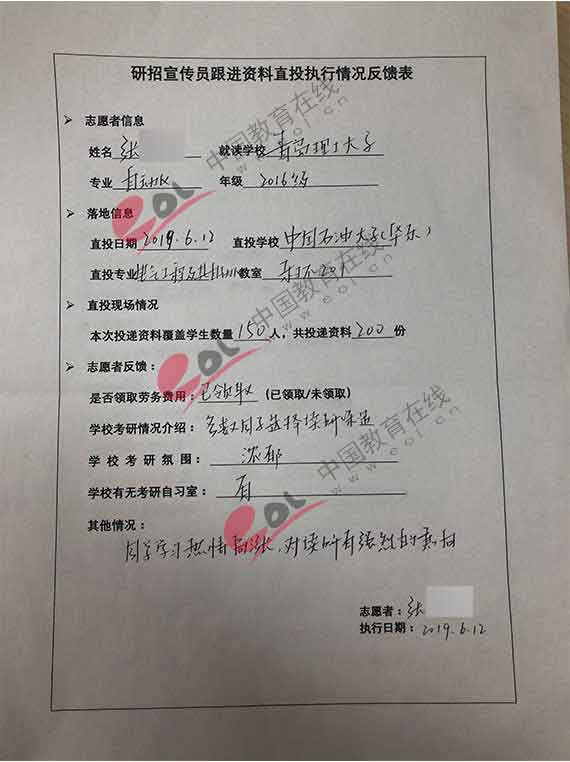 研招宣传员跟进资料直投执行情况反馈表
➢ 志愿者信息
姓名 张 就读学校 青岛理工大学
专业 自动化 年级 2016级
➢ 落地信息
直投日期 2019.6.12 直投学校 中国石油大学(华东)
直投专业 电气工程及其自动化 教室 东环201
➢ 直投现场情况
本次投递资料覆盖学生数量 150 人，共投递资料 200 份
➢ 志愿者反馈：
是否领取劳务费用：已领取 (已领取/未领取)
学校考研情况介绍：多数同学选择读研深造
学校考研氛围：浓郁
学校有无考研自习室：有
其他情况：
同学学习热情高涨，对读研有强烈的
志愿者：张
执行日期：2019.6.12
eol 中国教育在线
www.eol.cn
eol 中国教育在线
www.eol.cn
eol 中国教育在线
www.eol.cn